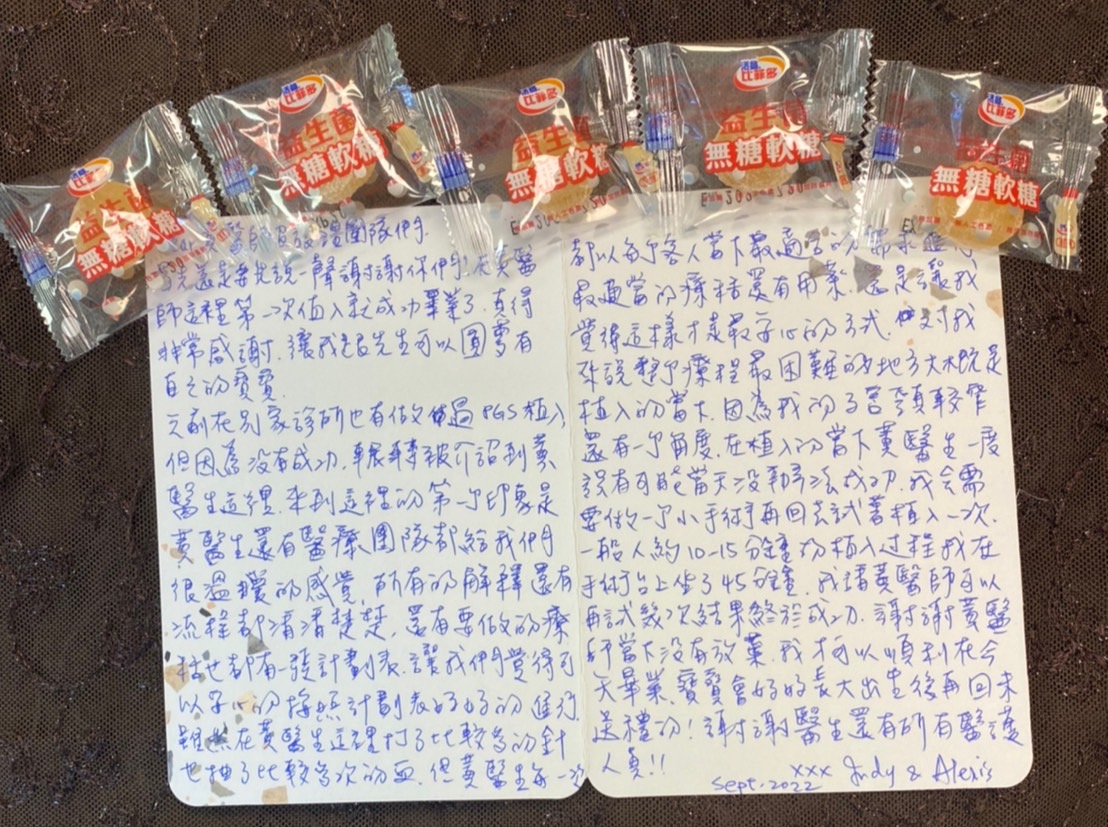 活益
比菲多
益生菌
無糖軟糖
活益
比菲多
益生菌
無糖軟糖
活益
比菲多
益生菌
無糖軟糖
活益
比菲多
益生菌
無糖軟糖
活益
比菲多
益生菌
無糖軟糖
醫師及救護團隊們
還是要先說一聲謝謝你們!在黃醫
師這裡第一次植入就成功畢業了.真得
非常感謝.讓我跟先生可以圓夢有
自己的寶寶.
之前在別家診所也有做過PGS植入,
但因為沒有成功.輾轉被介紹到黃
醫生這裡.來到這裡的第一個印象是
黃醫生還有醫療團隊都給我們
很溫暖的感覺,所有的解釋還有
流程都清清楚楚,還有要做的療
程也都有一張計劃表.讓我們覺得可
以安心的按照計劃表好好的進行.
雖然在黃醫生這裡打了比較多的針
也抽了比較多次的血.但黃醫生每一次
都以每個客人當下最適合的需求
最適當的療程還有用藥.還是讓我
覺得這樣才是最安心的方式.對我
來說整個療程最困難的地方大概是
植入的當下.因為我的子宮頸較窄
還有一個角度.在植入的當下黃醫生一度
說有可能當天沒辦法成功.我會需
要做一個小手術再回去試著植入一次.
一般人約10-15分鐘的植入過程我在
手術台上坐了45分鐘.我請黃醫師可以
再試幾次結果終於成功.謝謝黃醫
師當下沒有放棄.我才可以順利在今
天畢業.寶寶會好好長大出生後再回來
送禮的!謝謝醫生還有所有醫護
人員!!
Sept.2022 xxx Judy & Alexis